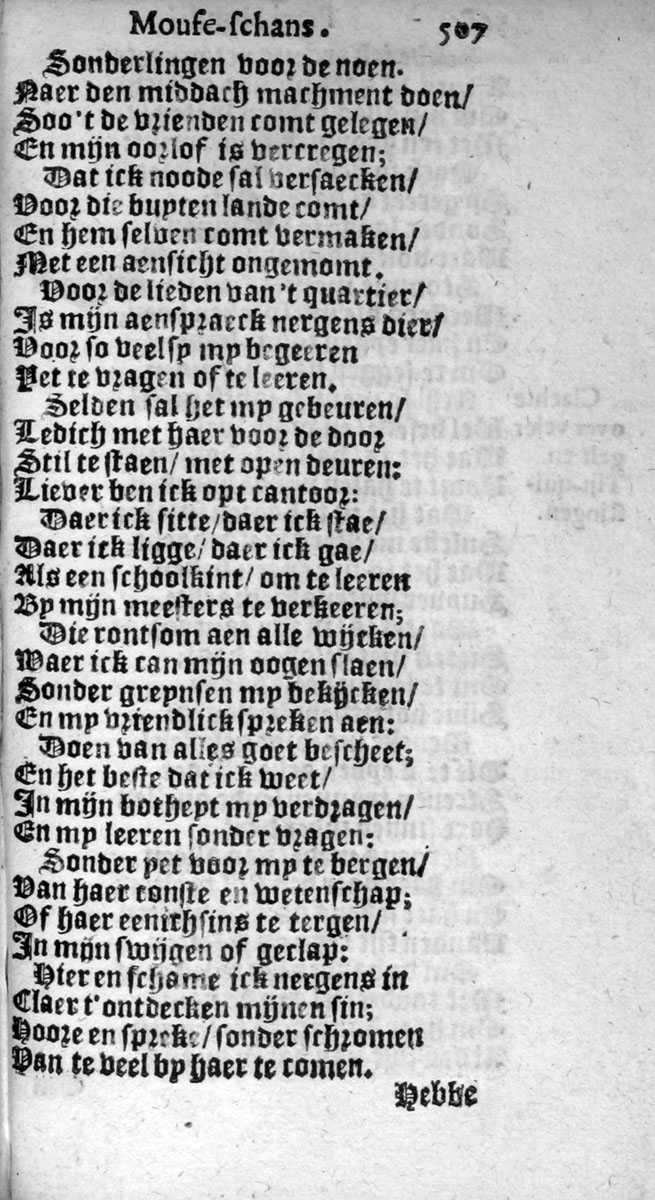 Mouse-schans. 507
Sonderlingen voor de noen.
Naer den middach machment doen/
Soo't de vrienden comt gelegen/
En mijn oorlof is vercregen;
Dat ick noode sal versaecken/
Voor die buyten lande comt/
En hem selven comt vermaken/
Met een aensicht ongemomt.
Voor de lieden van't quartier/
Is mijn aenspraeck nergens dier/
Voor so veel sy my begeeren
Yet te vragen of te leeren.
Selden sal het my gebeuren/
Ledich met haer voor de door
Stil te staen/ met open deuren:
Liever ben ick opt cantoor:
Daer ick sitte/ daer ick stae/
Daer ick ligge/ daer ick gae/
Als een schoolkint/ om te leeren
By mijn meesters te verkeeren;
Die rontsom aen alle wijcken/
Waer ick can mijn oogen slaen/
Sonder greynsen my bekijcken/
En my vriendlick spreken aen:
Doen van alles goet bescheet;
En het beste dat ick weet/
In mijn botheyt my verdragen/
En my leeren sonder vragen:
Sonder yet voor my te bergen/
Van haer conste en wetenschap;
Of haer eenichsins te tergen/
In mijn swijgen of geclap:
Hier en schame ick nergens in
Claer t'ontdecken mijnen sin;
Hoore en spreke/ sonder schromen
Van te veel by haer te comen.
Hebbe